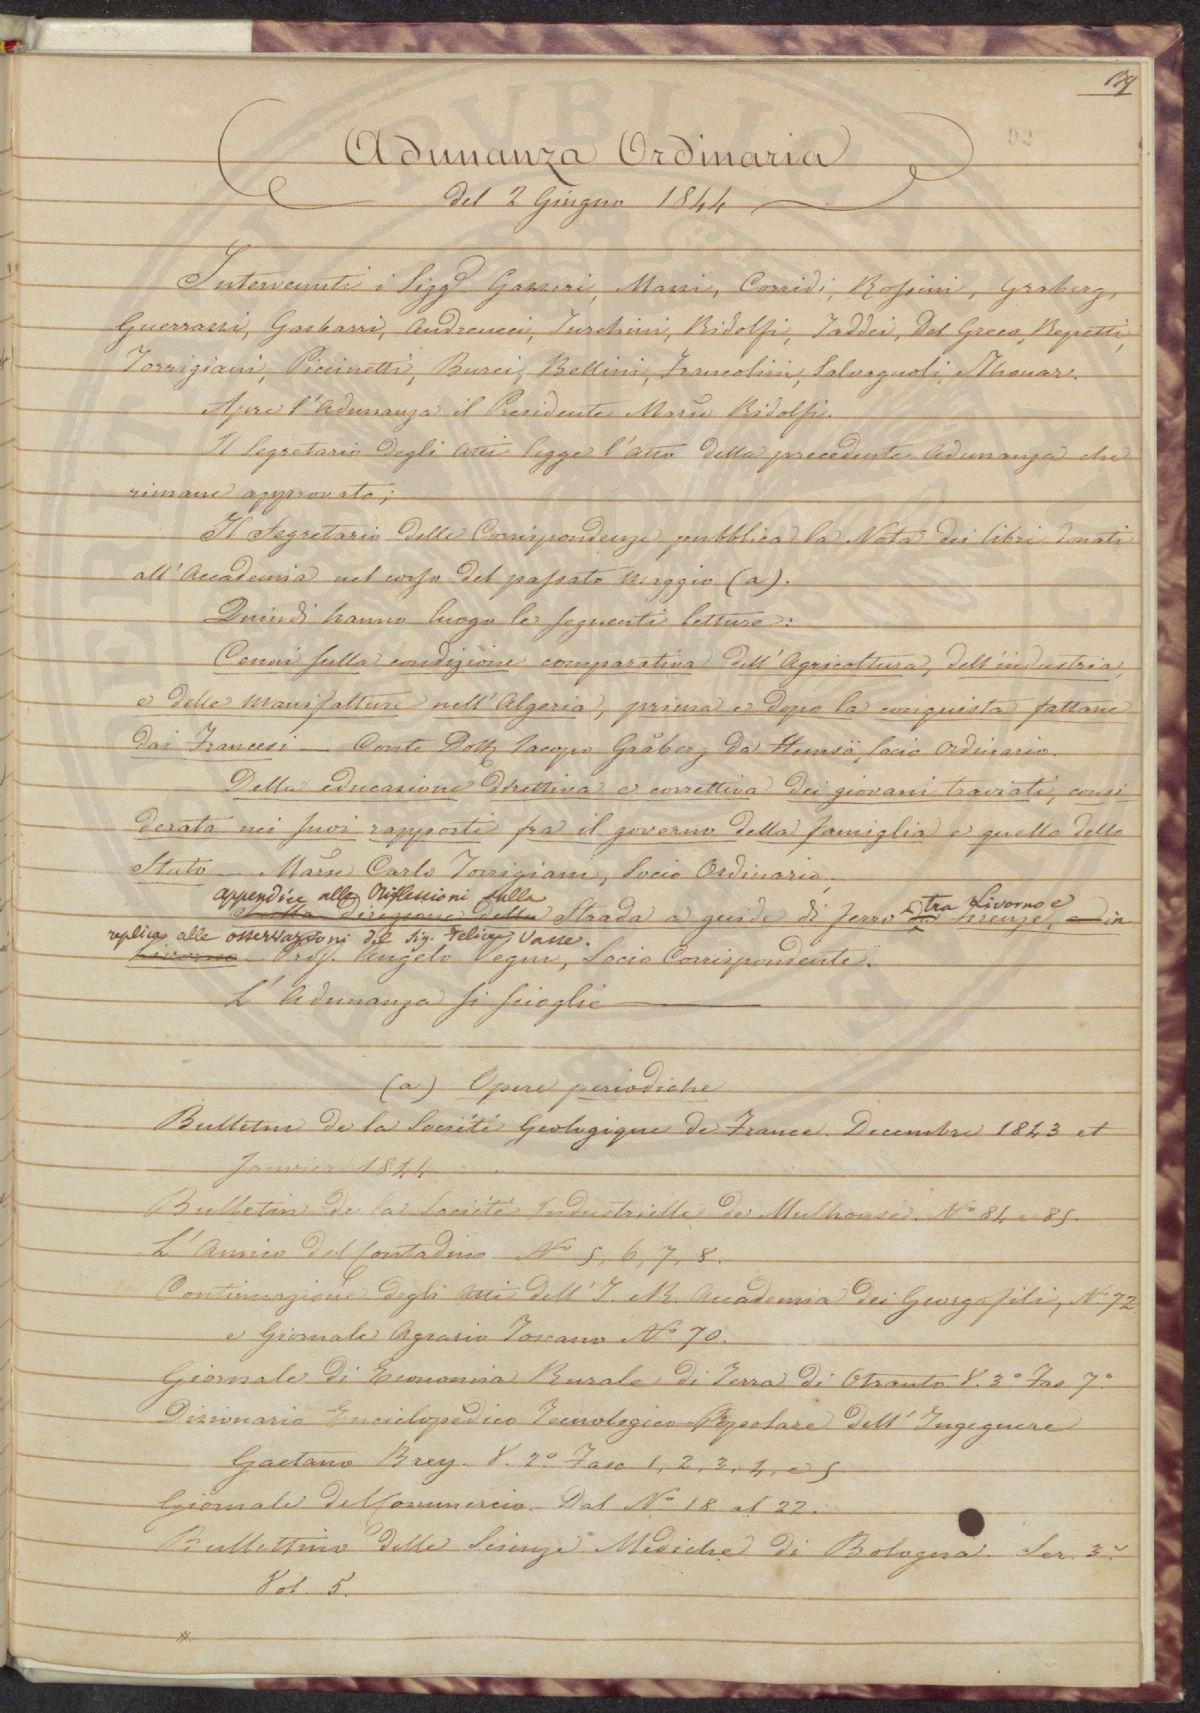 Adunanza Ordinaria
del 2 Giugno 1844
Intervenuti i Sigg.i Gazzeri, Mazzi, Corridi, Rossini, Graberg,
Guerrazzi, Gasbarri, Andreucci, Turchini, Ridolfi, Taddei, Del Greco, Repetti,
Torrigiani, Piccinetti, Burci, Bellini, Francolini, Salvagnoli, Thouar.
Apre l'Adunanza il Presidente March.e Ridolfi.
Il Segretario degli Atti legge l'Atto della precedente Adunanza che
rimane approvato;
Il Segretario delle Corrispondenze pubblica la Nota dei libri donati
all'Accademia nel corso del passato Maggio (a).
Quindi hanno luogo le seguenti letture:
Cenni sulla condizione comparativa dell'Agricoltura, dell'industria,
e delle Manifatture nell'Algeria, prima e dopo la conquista fattane
dai Francesi — Conte Dott. Jacopo Gråberg da Hemsö, Socio Ordinario.
Della educazione direttiva e correttiva dei giovani traviati, consi
derata nei suoi rapporti fra il governo della famiglia e quello dello
Stato — March.e Carlo Torrigiani, Socio Ordinario.
appendice alle Riflessioni sulla
Sulla direzione della Strada a guide di ferro tra Livorno e Firenze, e in
replica alle osservazioni del Sig. Felice Vasse.
Livorno — Prof. Angelo Vegni, Socio Corrispondente.
L'Adunanza si scioglie
(a) Opere periodiche
Bulletin de la Société Geologique de France. Decembre 1843 et
Janvier 1844.
Bulletin de la Société Industrielle de Mulhouse. N.o 84 e 85.
L'Amico del Contadino N.o 5, 6, 7, 8.
Continuazione degli Atti dell'I. e R. Accademia dei Georgofili, N.o 72
e Giornale Agrario Toscano N.o 70.
Giornale di Economia Rurale di Terra di Otranto V. 3.o Fas 7.o
Dizionario Enciclopedico Tecnologico-Popolare dell'Ingegnere
Gaetano Brey. V. 2.o Fasc 1, 2, 3, 4, e 5
Giornale del Commercio. Dal N.o 18 al 22.
Bullettino delle Scienze Mediche di Bologna. Ser. 3.a
Vol. 5.